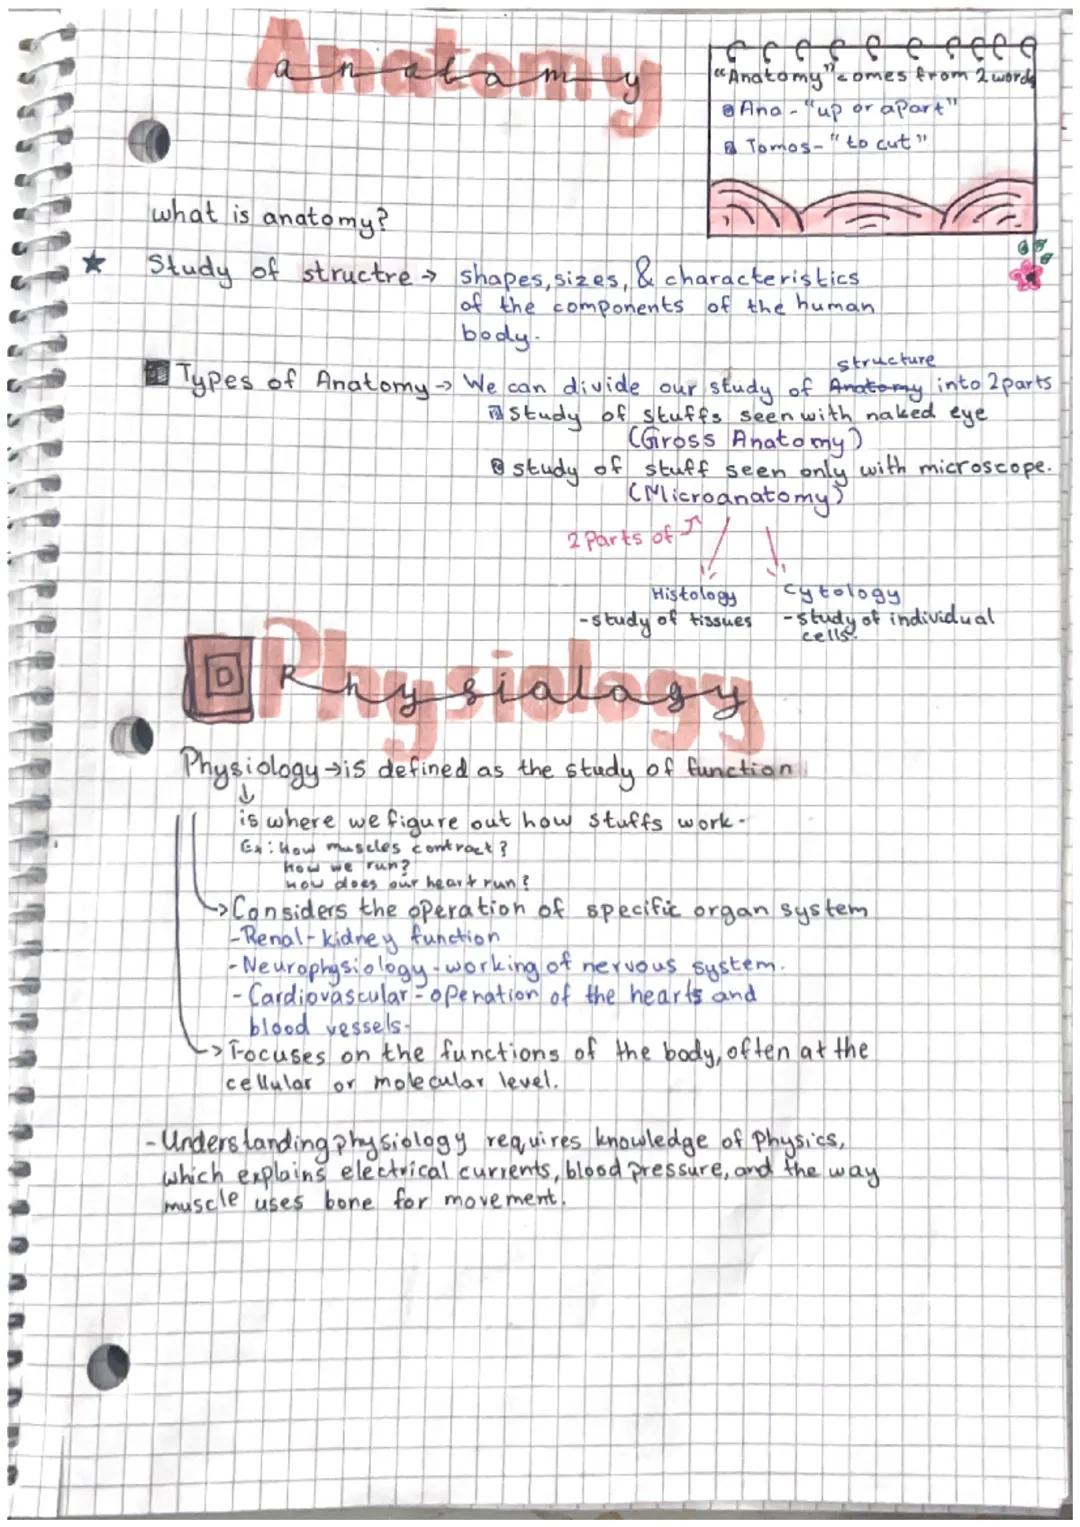 Anatomy
anatomy
"Anatomy" comes from 2 words
Ana - "up or apart"
Tomos - "to cut"
what is anatomy?
Study of structre → shapes, sizes, & characteristics
of the components of the human
body.
structure
Types of Anatomy → We can divide our study of Anatomy into 2 parts
study of stuffs seen with naked eye
(Gross Anatomy)
study of stuff seen only with microscope.
(Microanatomy)
2 Parts of
Histology
- study of tissues
Cytology
- study of individual
cells.
Physiology
Physiology
Physiology → is defined as the study of function
is where we figure out how stuffs work.
Ex: How muscles contract?
How we run?
How does our heart run?
→ Considers the operation of specific organ system
- Renal - kidney function
- Neurophysiology - working of nervous system.
- Cardiovascular - operation of the hearts and
blood vessels.
→ Focuses on the functions of the body, often at the
cellular or molecular level.
- Understanding physiology requires knowledge of Physics,
which explains electrical currents, blood pressure, and the way
muscle uses bone for movement.